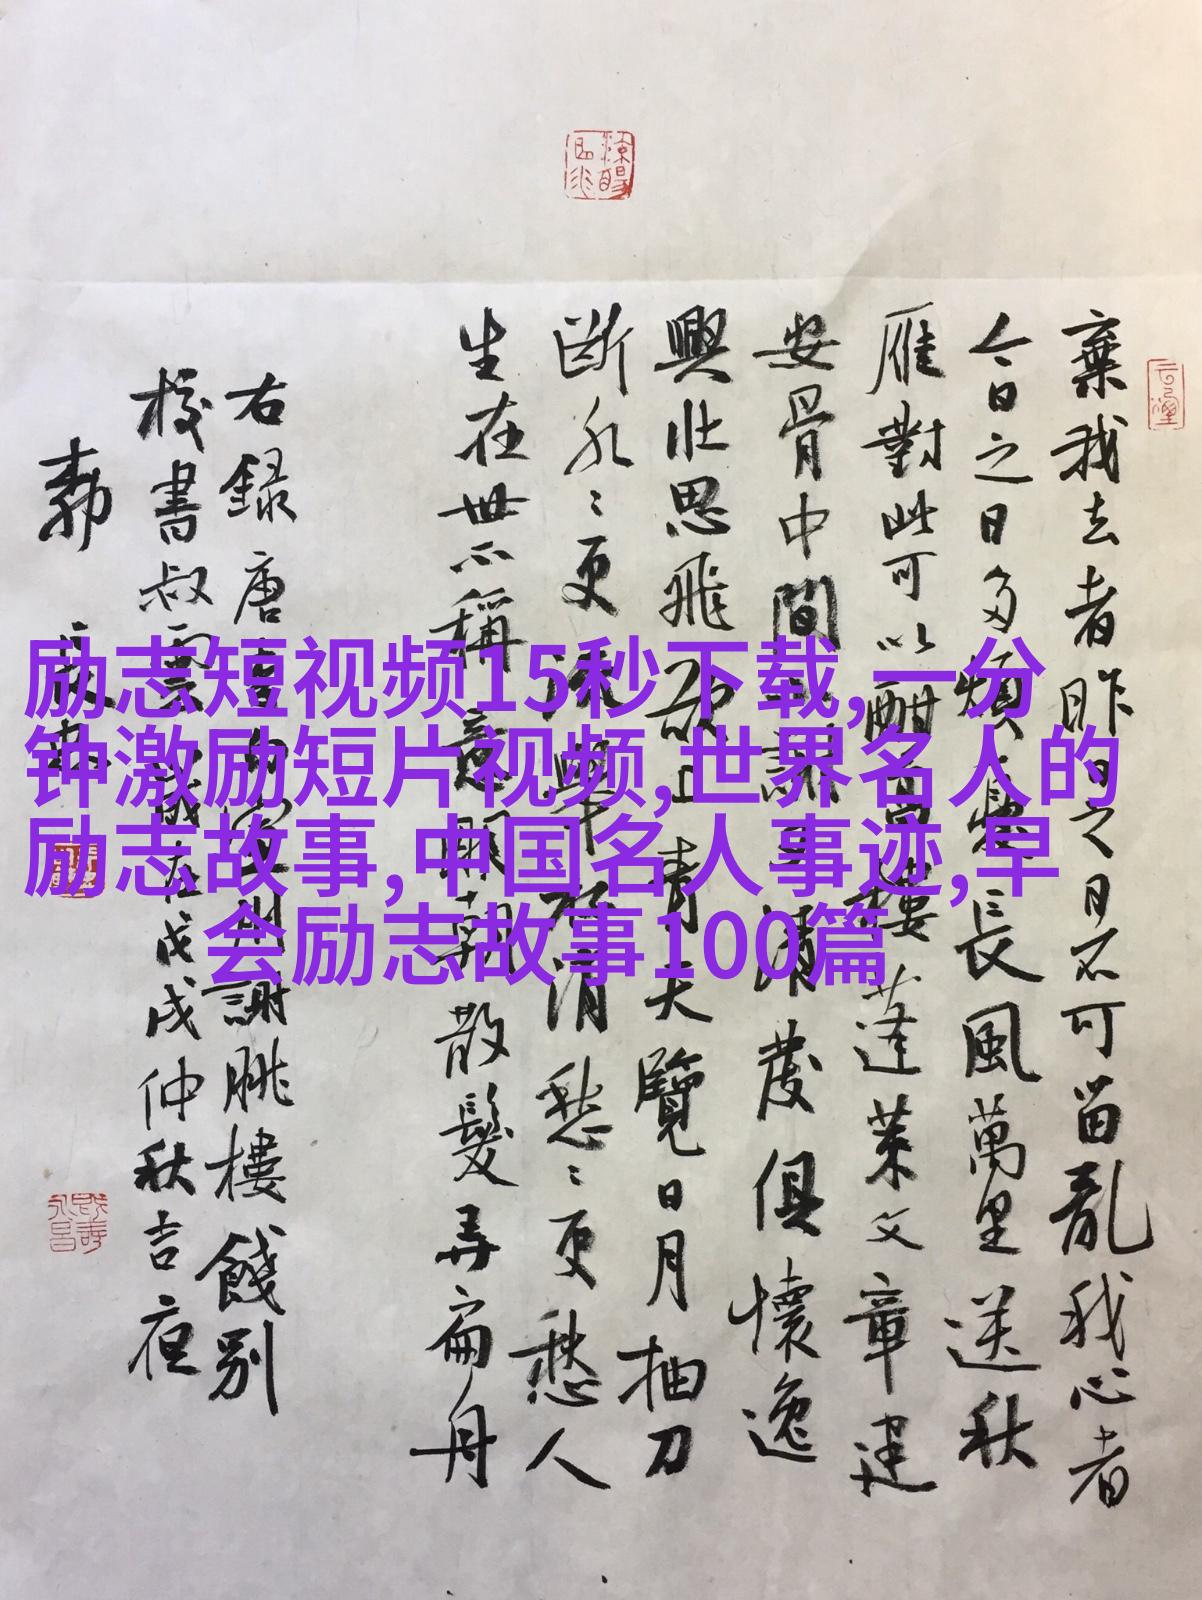 励志短视频15秒下载,一分
钟激励短片视频,世界名人的
励志故事,中国名人事迹,早
会励志故事100篇
棄我去者昨日之日不可留亂我心者
今日之日多煩憂長風萬里送秋
雁對此可以酣高樓蓬萊文章建
安骨中間謝清發俱懷逸
興壯思飛欲上青天覽日月抽刀
斷水〻更流舉杯消愁〻更愁人
生在世不稱意明朝散髮弄扁舟
右録唐李白宣州謝朓樓餞別
校書叔雲歲在戊戌仲秋吉夜